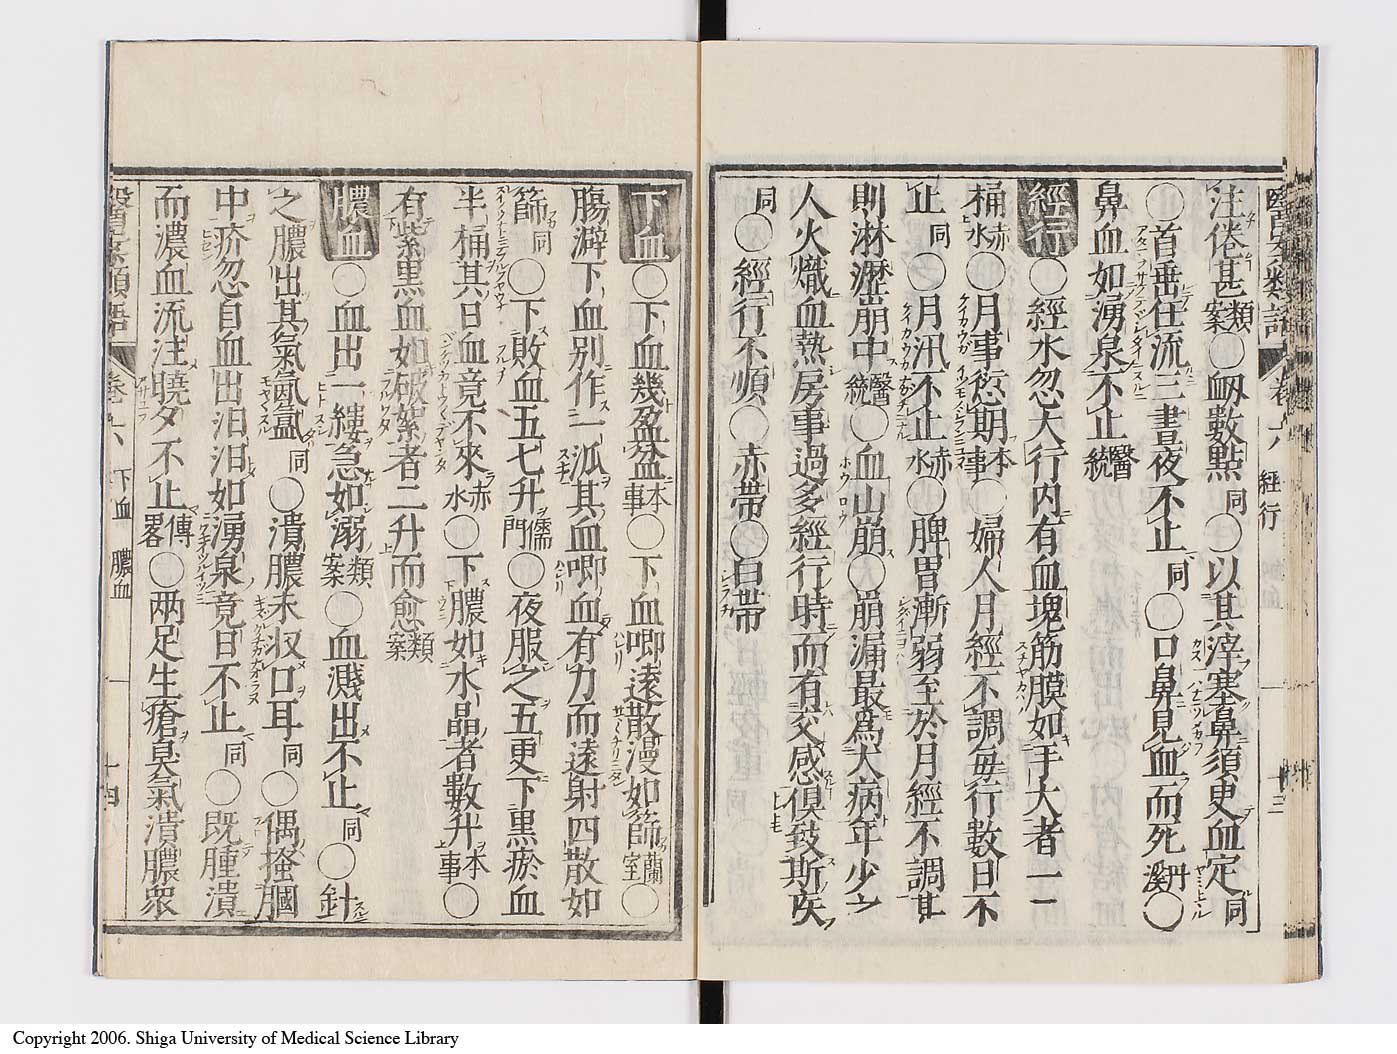 注倦甚類案○衂數點同○以其滓塞鼻須臾血定同
○首垂任流三晝夜不止同○口鼻見血而死丹溪○
鼻血如湧泉不止醫統
經行○經水忽大行内有血塊筋膜如手大者一二
桶赤水○月事愆期本事○婦人月經不調每行數日不
止同○月汛不止赤水○脾胃漸弱至於月經不調甚
則淋瀝崩中醫統○血山崩○崩漏最爲大病年少之
人火熾血熱房事過多經行時而有交感俱致斯疾
同○經行不順○赤帶○白帶
醫案類語 卷六 經行 十三
下血○下血幾盈盆本事○下血喞遠散漫如篩蘭室○
腸澼下血別作一泒其血喞血有力而遠射四散如
篩同○下敗血五七升儒門○夜服之五更下黒瘀血
半桶其日血竟不來赤水○下膿如水晶者數升本事○
有紫黒血如破絮者二升而愈類案
膿血○血出一縷急如溺類案○血濺出不止同○針
之膿出其氣氤氳同○潰膿未収口耳同○偶搔膕
中疥忽自血出汩汩如湧泉竟日不止同○既腫潰
而濃血流注曉夕不止傳畧○两足生瘡臭氣潰膿衆
醫案類語 卷六 下血 膿血 十四
Copyright 2006. Shiga University of Medical Science Library